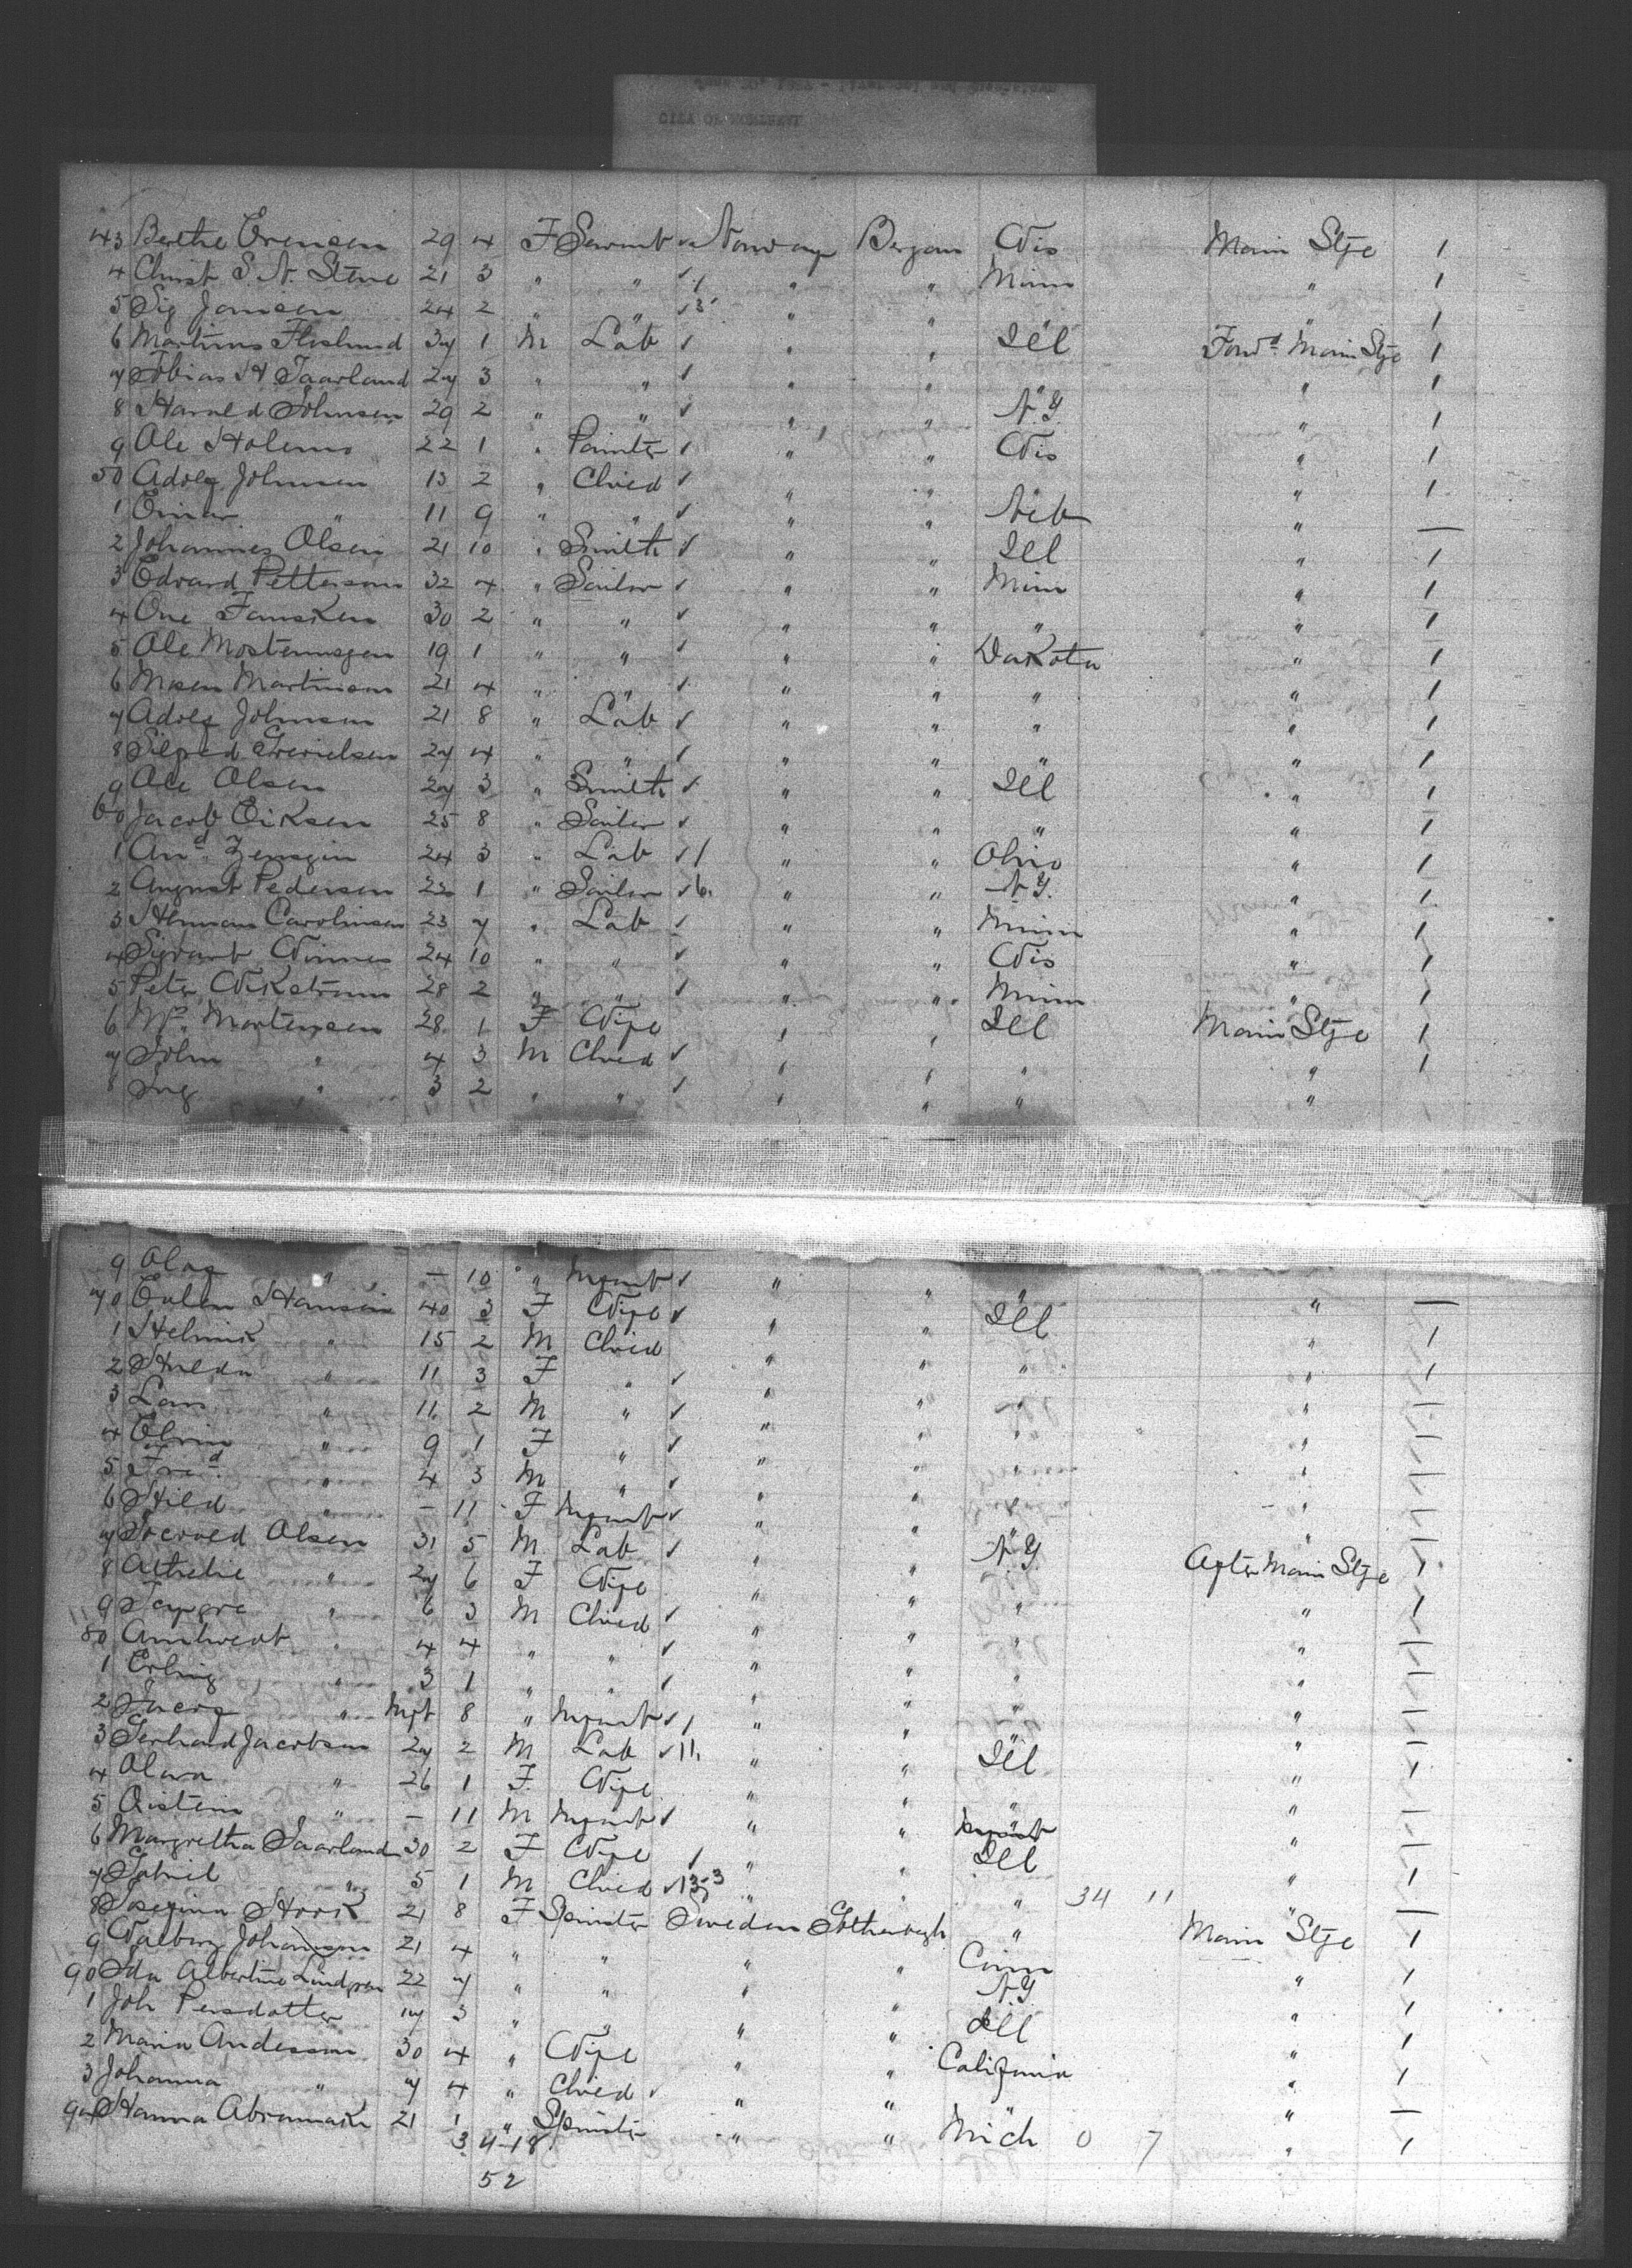 CITY OF
43 Berthe Evensen 29 4 F Servant Norway Bergen Wis Main Stge 1
4 Christ S. N. Stene 21 3 " " " " Minn " 1
5 Sig Jansen 24 2 " " " " " " 1
6 Martinus 37 1 M Lab " " Ill Forwd Main Stge 1
7 Tobias H Saarland 27 3 " " " " " " 1
8 Harald Johnsen 29 2 " " " " N.Y. " 1
9 Ole Holem 22 1 " Painter " " Wis " 1
50 Adolf Johnsen 13 2 " Child " " " " 1
1 Einar " 11 9 " " " " Neb " —
2 Johannes Olsen 21 10 " Smith " " Ill " 1
3 Edvard Petterson 32 4 " Sailor " " Minn " 1
4 One Fansken 30 2 " " " " " " 1
5 Ole 19 1 " " " " Dakota " 1
6 Martinsen 21 4 " " " " " " 1
7 Adolf Johnsen 21 8 " Lab " " " " 1
8 27 4 " " " " " " 1
9 Ole Olsen 27 3 " Smith " " Ill " 1
60 Jacob Eiksen 25 8 " Sailor " " " " 1
1 And. 24 3 " Lab " " Ohio " 1
2 August Pedersen 22 1 " Sailor " " N.Y. " 1
3 Herman Carolinsen 23 7 " Lab " " Minn " 1
4 Sivart Winnes 24 10 " " " " Wis " 1
5 Peter Wikstrom 28 2 " " " " Minn " 1
6 Mrs. Mortensen 28 1 F Wife " " Ill Main Stge 1
7 John " 4 3 M Child " " " " 1
8 Ing " 3 2 " " " " " "
9 Olaf " — 10 " Infant " " " " —
70 Hansen 40 3 F Wife " " Ill " 1
1 Helmik " 15 2 M Child " " " " 1
2 Hulda " 11 3 F " " " " "
3 Lars " 11 2 M " " " " "
4 " 9 1 F " " " " "
5 Fred " 4 3 M " " " " "
6 Hild " — 11 F Infant " " " "
7 Olsen 31 5 M Lab " " N.Y. After Main Stge 1
8 Athelie " 27 6 F Wife " " " " 1
9 " 6 3 M Child " " " "
80 " 4 4 " " " " " "
1 Erling " 3 1 " " " " " "
2 " Inft 8 " Infant " " " "
3 Gerhard Jacobsen 27 2 M Lab 11 " " Ill " 1
4 " 26 1 F Wife " " " " 1
5 Oistein " — 11 M Infant " " " —
6 Margretha Saarland 30 2 F Wife " " Ill " 1
7 Gabriel " 5 1 M Child " " " 34 11 " —
8 Josefina Hook 21 8 F Spinster Sweden Gothenbogh " Main Stge 1
9 Valborg Johansson 21 4 " " " " Conn " 1
90 Ida Albertina Lindgren 22 7 " " " " N.Y. " 1
1 Joh Persdotter 17 3 " " " " Ill " 1
2 Maria Andersson 30 4 " Wife " " California " 1
3 Johanna " 7 4 " Child " " " " —
94 Hanna 21 1 " Spinster " " Mich 0 7 " 1
3 4-18
52